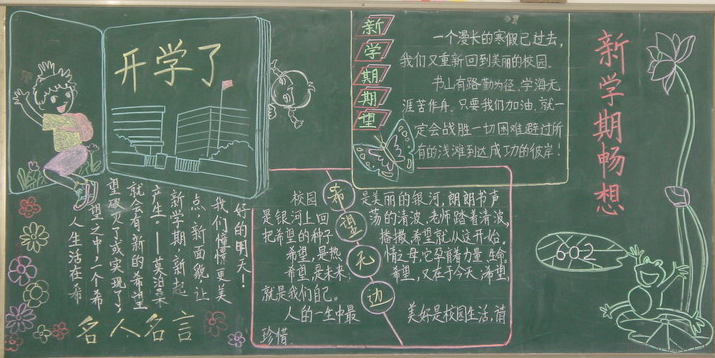 开学了
新学期期望
一个漫长的寒假已过去，
我们又重新回到美丽的校园。
书山有路勤为径，学海无
涯苦作舟。只要我们加油，就一
定会战胜一切困难，避过所
有的浅滩到达成功的彼岸！
新学期畅想
602
好的明天！
我们憧憬更美
点，新面貌，让
新学期，新起
产生。——莫泊桑
就会有新的希望
望破灭了或实现了，
望之中，一个希
人生活在希
名人名言
希望礼边
校园是美丽的银河，朗朗书声
是银河上回荡的清波，老师踏着清波，
把希望的种子播撒，希望就从这开始。
希望，是热情之母，它孕育着力量，生命。
希望，是未来，希望，又在于今天，希望，
就是我们自己。
人的一生中最美好是校园生活，请
珍惜。